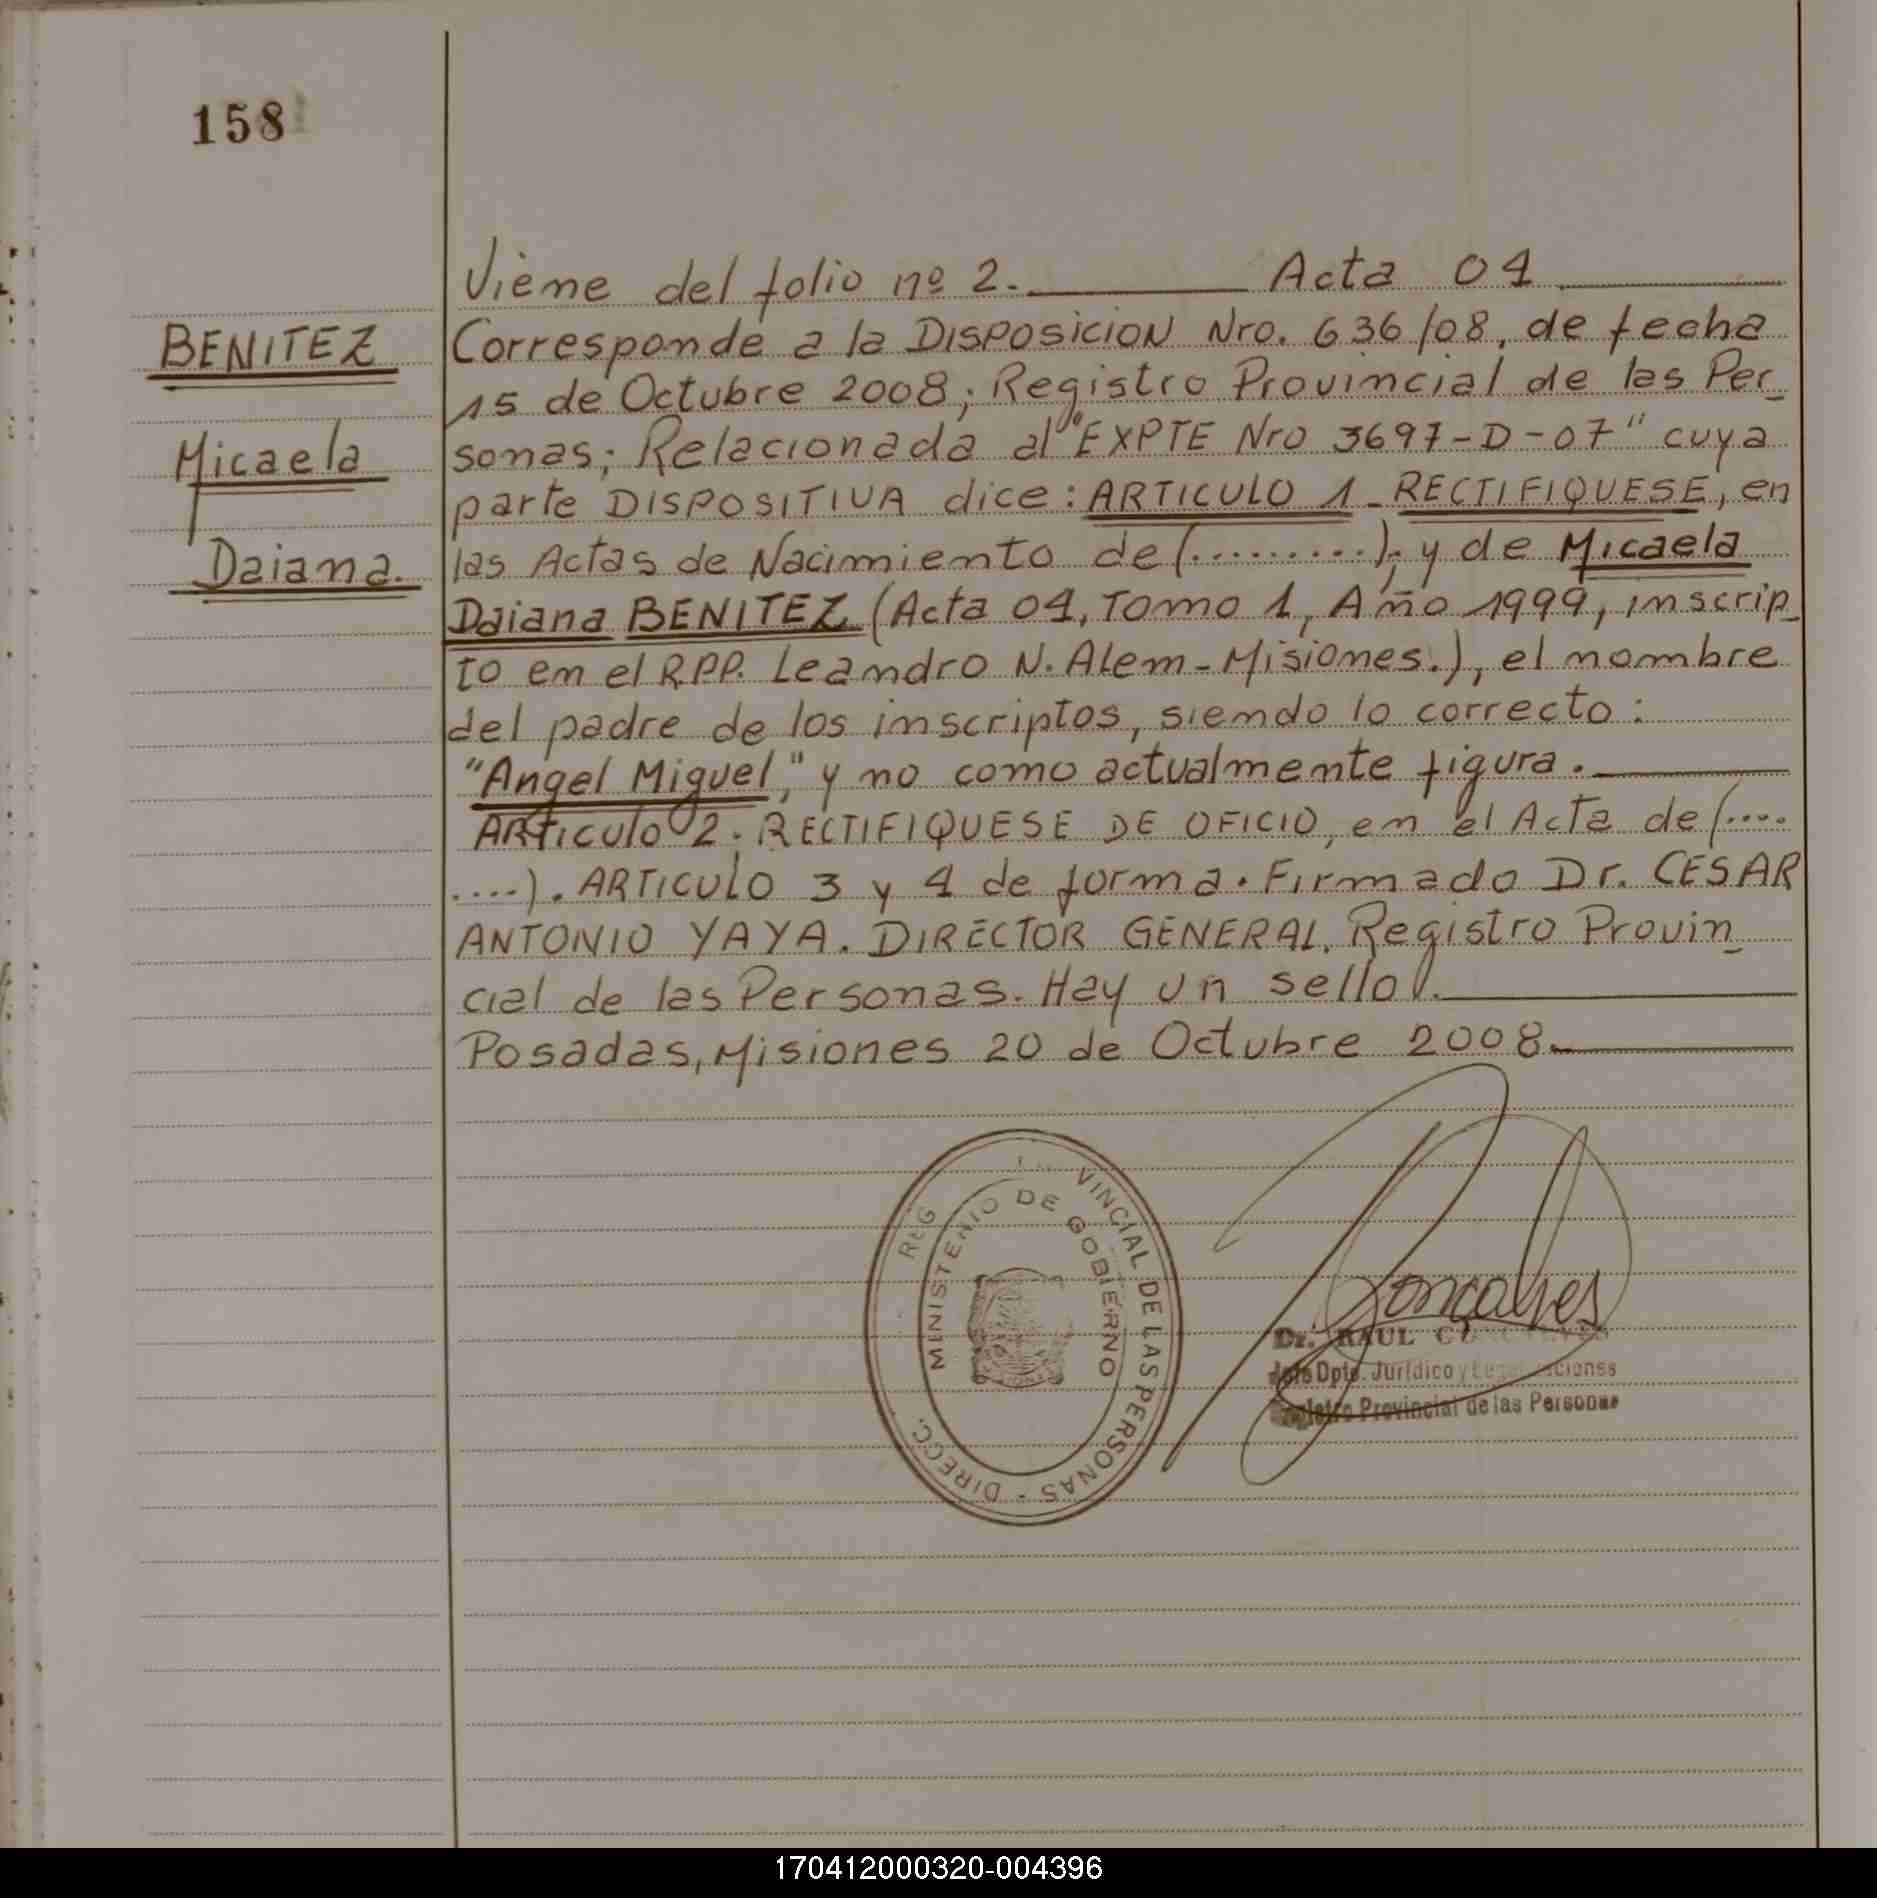 158
BENITEZ
Micaela
Daiana.
Viene del folio nº 2. Acta 04
Corresponde a la DISPOSICION Nro. 636/08, de fecha
15 de Octubre 2008; Registro Provincial de las Per_
sonas; Relacionada al "EXPTE Nro 3697-D-07" cuya
parte DISPOSITIVA dice: ARTICULO 1_ RECTIFIQUESE, en
las Actas de Nacimiento de (..........); y de Micaela
Daiana BENITEZ (Acta 04, Tomo 1, Año 1999, inscrip_
to en el R.P.P. Leandro N. Alem-Misiones.), el nombre
del padre de los inscriptos, siendo lo correcto:
"Angel Miguel," y no como actualmente figura.
ARTICULO 2. RECTIFIQUESE DE OFICIO, en el Acta de (....
....). ARTICULO 3 y 4 de forma. Firmado Dr. CESAR
ANTONIO YAYA. DIRECTOR GENERAL. Registro Provin_
cial de las Personas. Hay un sello.
Posadas, Misiones 20 de Octubre 2008.
REG VINCIAL DE LAS PERSONAS - DIRECC.
MINISTERIO DE GOBIERNO
Dr. RAUL
Dpto. Jurídico y
Provincial de las Personas
170412000320-004396